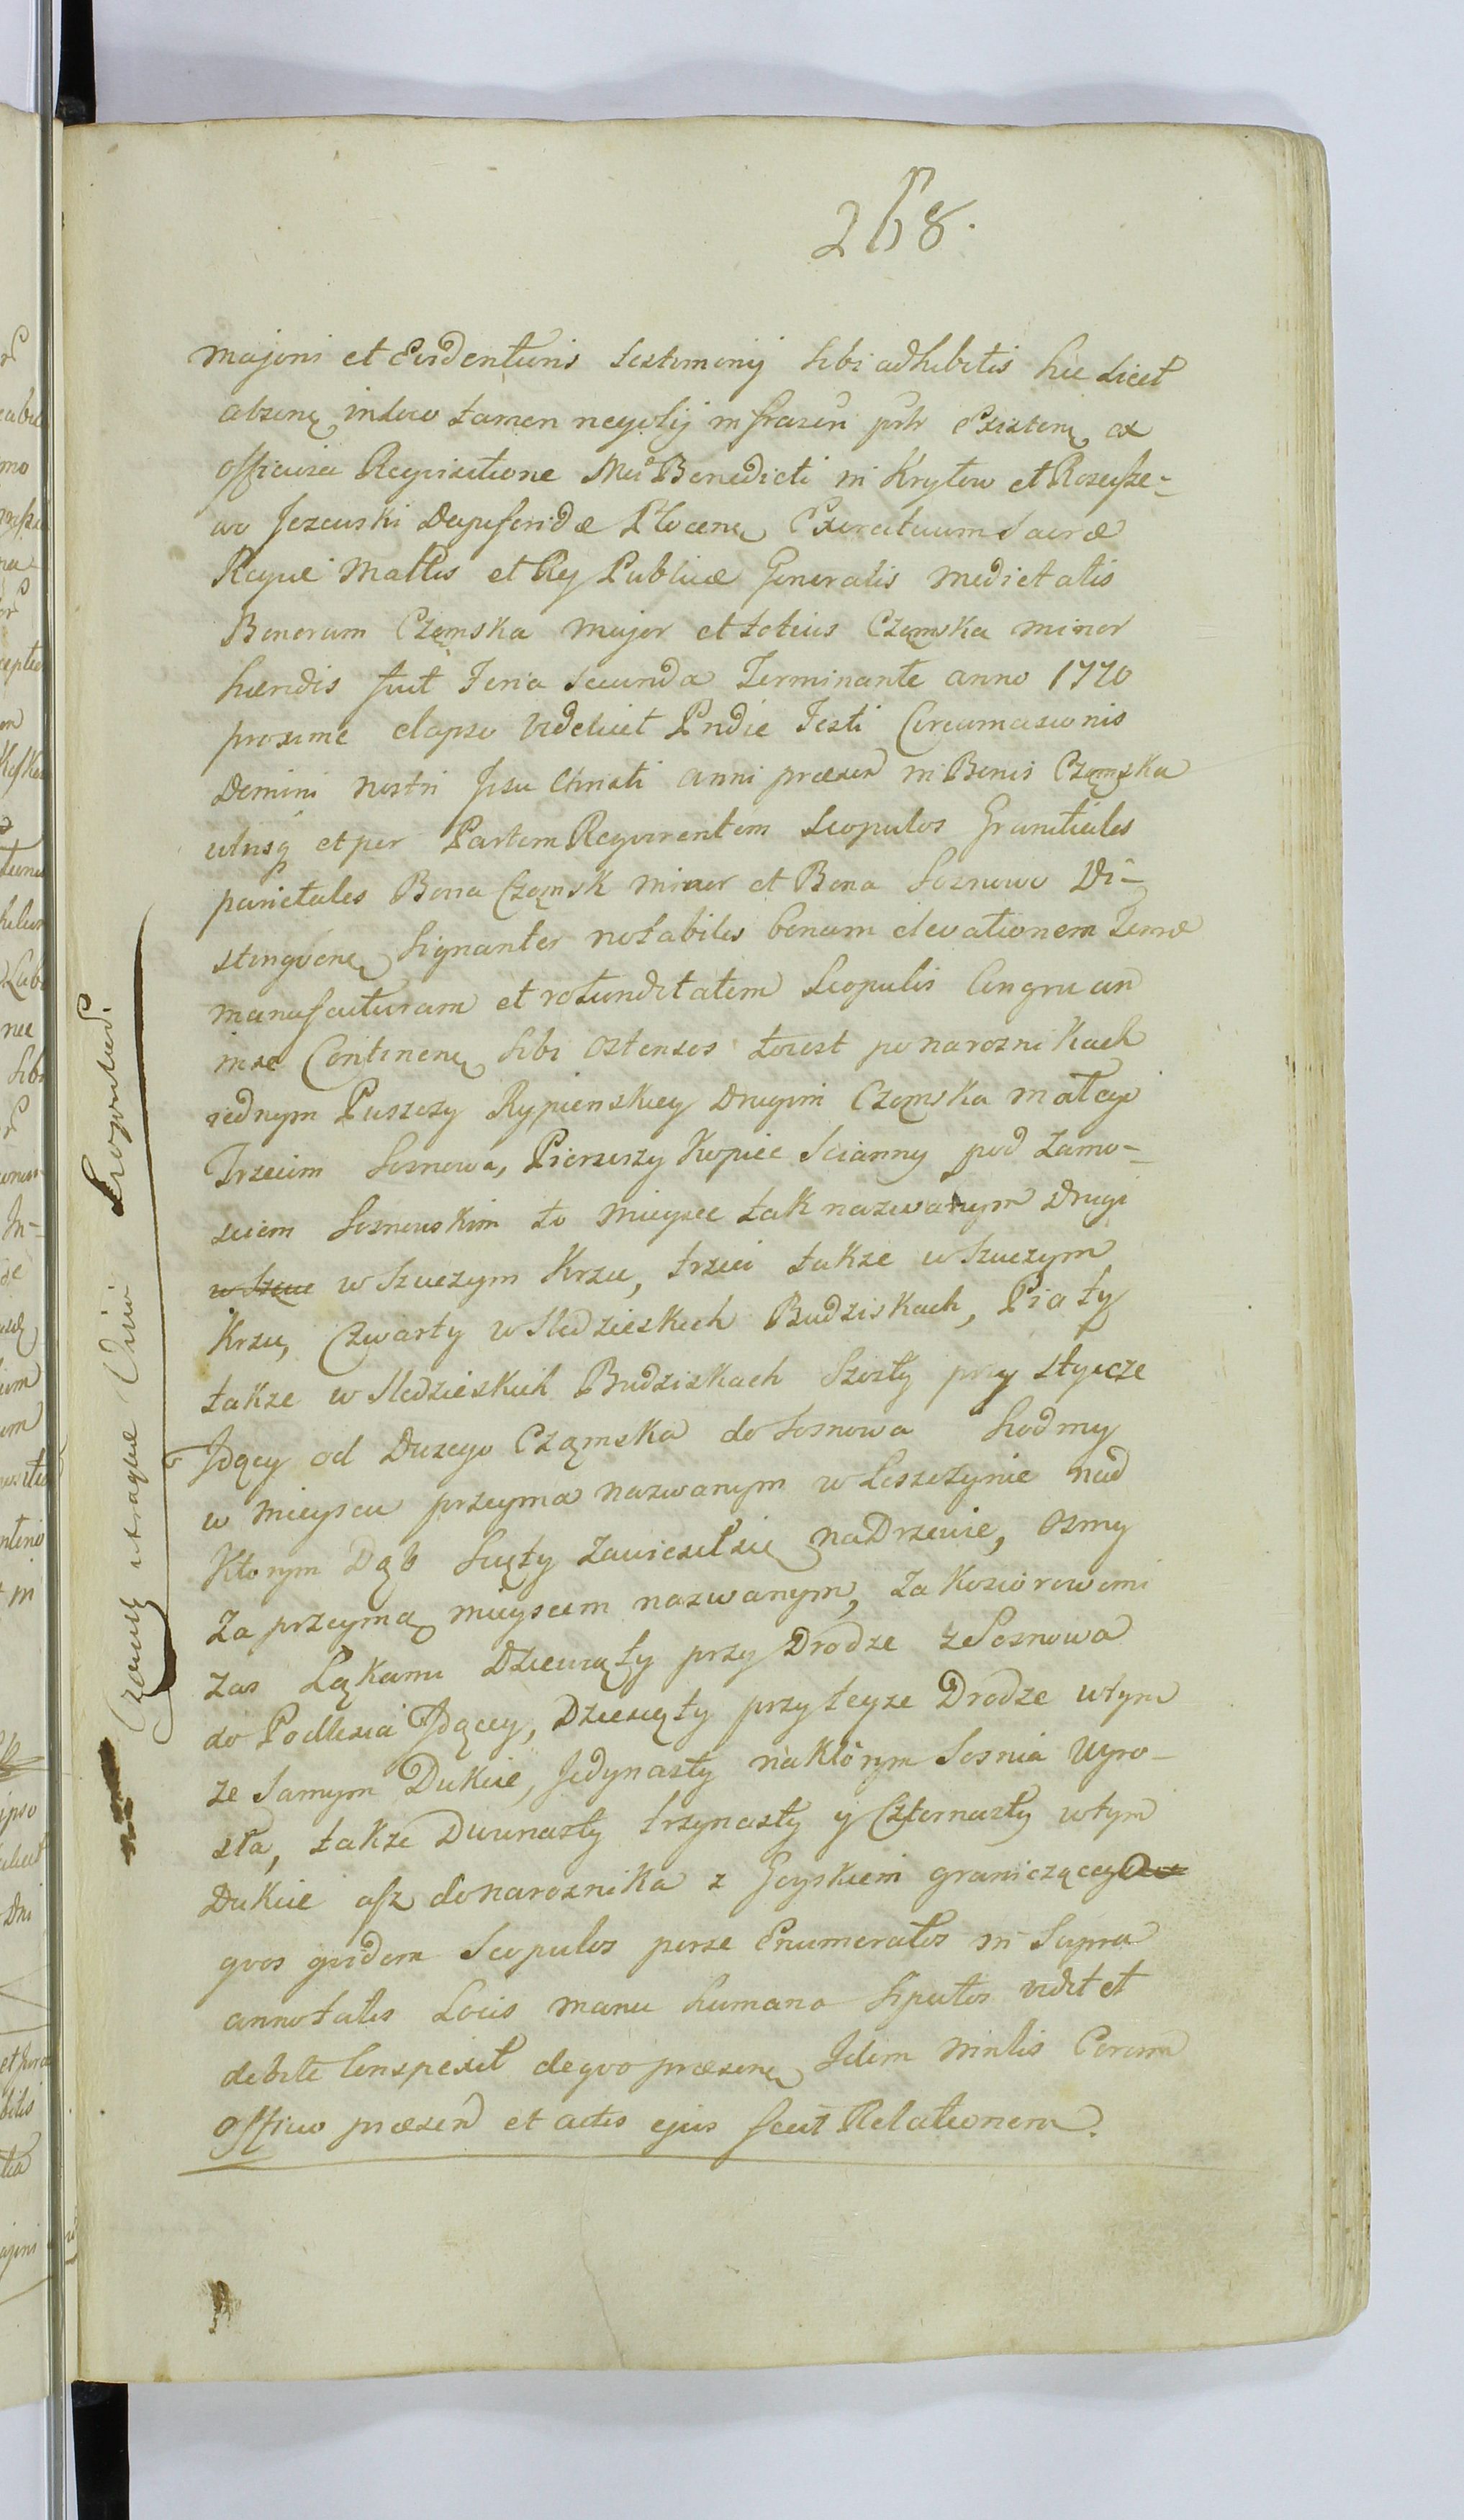 268.
majori et Evidentioris testimonij sibi adhibitis hic licet
absene in loco tamen negotij infrascri pntr existene ex
officiosa Requisitione Mci Benedicti in Krytow et Roscisze-
wo Jezewski Dapiferidæ Plocene Exercituum Sacræ
Regiæ Mattis et Rei Publicæ Generalis medietatis
Bonorum Czemska major et totius Czemska minor
hæredis fuit Feria Secunda Terminante anno 1770
proxime elapso videlicet Pridie Festi Circumcisionis
Domini nostri Jesu Christi anni præsen in Bonis Czemska
utrisq et per Partem Requirentem Scopulos Granitiales
parietales Bona Czemsk minor et Bona Sosnowo Di-
stingvene Signanter notabiles benam elevationem Terræ
manufacturam et rotunditatem Scopulis Congruan
in se Continene Sibi ostensos to iest po narożnikach
iednym Puszczy Rypienskiey Drugim Czemska małey
Trzecim Sosnowa, Pierwszy Kopiec Scianny pod zamo-
sciem Sosnowskim to Mieysce tak nazwanym drugi
w Szuczym Krzu, trzeci także w Szuczym
Krzu, Czwarty w Sledzieskich Budziskach, Piąty
także w Sledzieskich Budziskach Szosty przy styczce
Jdącey od Duzego Cząmska do Sosnowa Siodmy
w mieyscu przeyma nazwanym w Leszczynie nad
Ktorym Dąb Suchy zawiesił się na Drzewie, Osmy
za przeymą mieyscem nazwanym, za Koziorowemi
zas Łąkami Dziewiąty przy Drodze z Sosnowa
do Podlesia Jdącey, Dziesiąty przy teyze Drodze w tym
ze Samym Dukcie, Jedynasty na którym Sosnia Wyro-
sła, także Dwunasty trzynasty y Czternasty w tym
Dukcie asz do narożnika z Gozskiem graniczącego
qvos qvidem Scopulos per se Enumeratos in Supra
annotatis Locis manu humana Sipatos vidit et
debite Conspexit de qvo præsene Idem Minlis Coram
Officio præsen et actis ejus fecit Relationem.
Czemsk utraque Visio Scopulor.